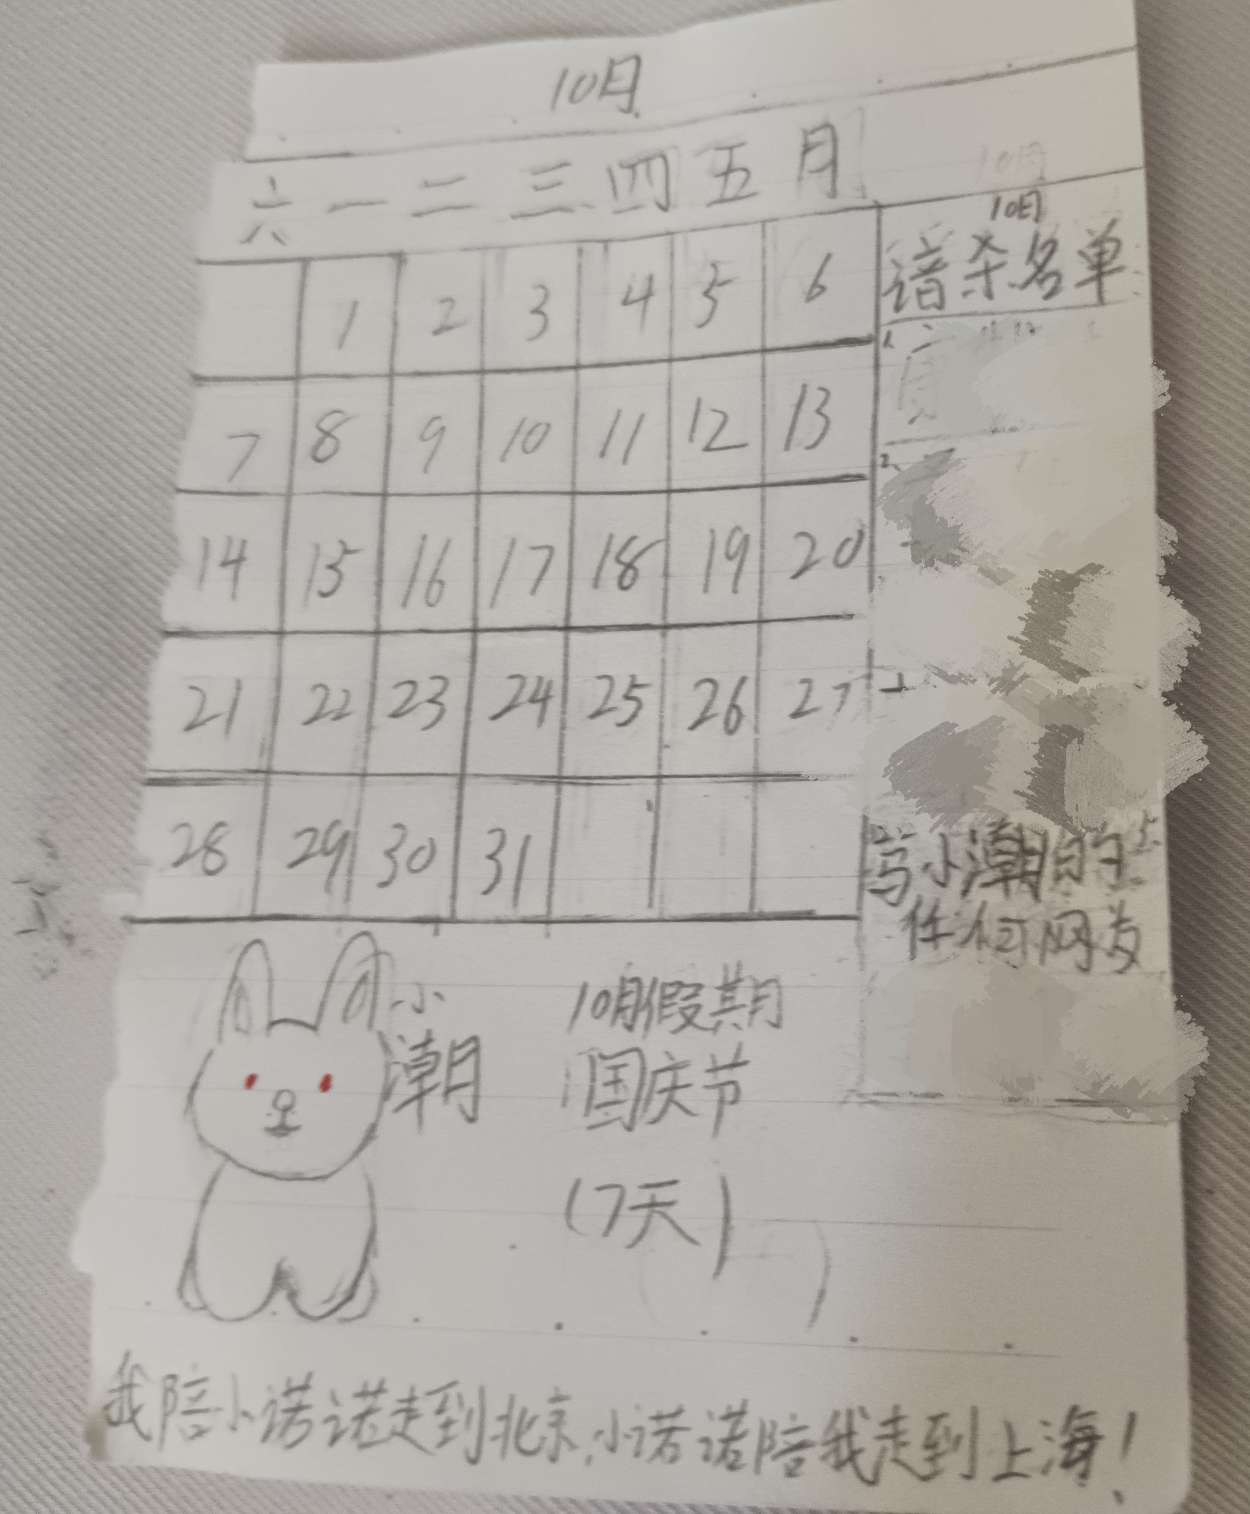 10月
六 一 二 三 四 五 月
10月
暗杀名单
1 2 3 4 5 6
7 8 9 10 11 12 13
14 15 16 17 18 19 20
21 22 23 24 25 26 27
28 29 30 31
1.
2.
骂小潮的
任何网友
小
潮
10月假期
国庆节
(7天)
我陪小诺诺走到北京,小诺诺陪我走到上海!